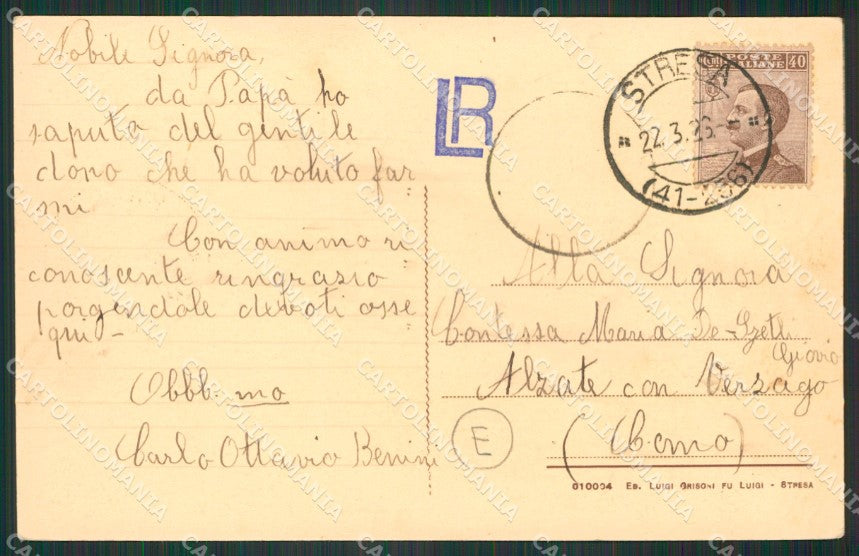 Nobile Signora,
da Papà ho
saputo del gentile
dono che ha voluto far=
mi
Con animo ri=
conoscente ringrazio
porgendole devoti osse=
qui -
Obbb. mo
Carlo Ottavio Benini
LR
STRESA
22.3.26.-
(41-236)
POSTE
ITALIANE
40
Alla Signora
Contessa Maria De-
Giovio
Alzate con Verzago
(Como)
E
010004 ED. LUIGI GRISONI FU LUIGI - STRESA
CARTOLINOMANIA